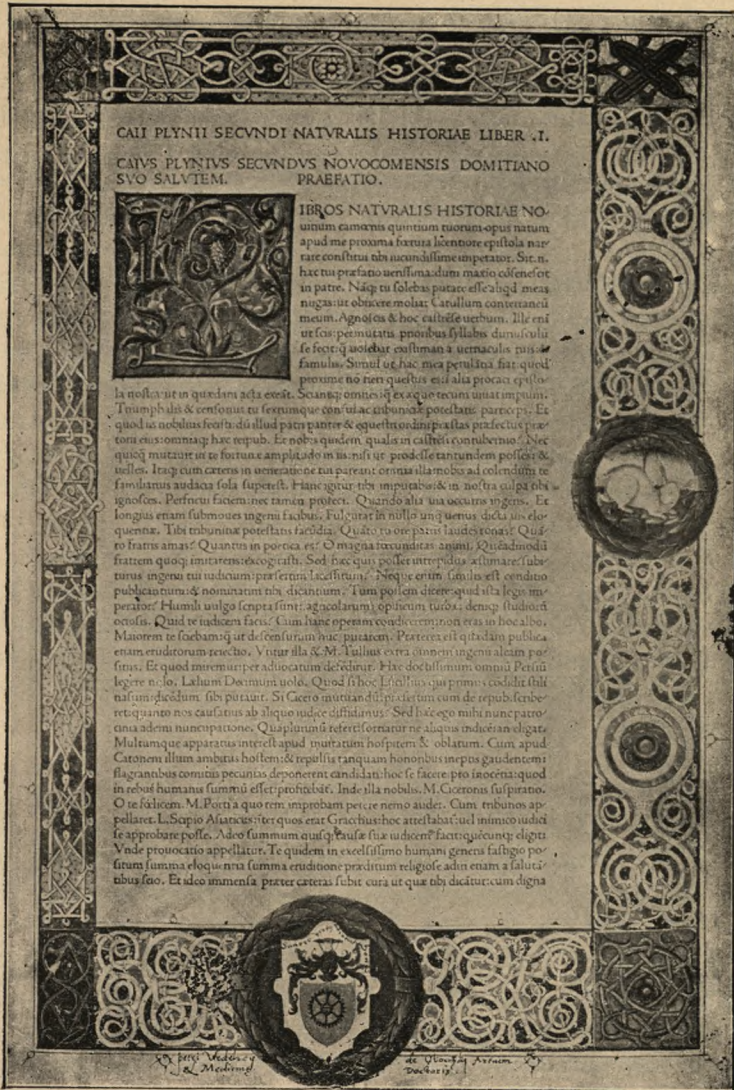 CAII PLYNII SECVNDI NATVRALIS HISTORIAE LIBER .I.
CAIVS PLYNIVS SECVNDVS NOVOCOMENSIS DOMITIANO
SVO SALVTEM. PRAEFATIO.
LIBROS NATVRALIS HISTORIAE NO-
uitium camœnis quiritium tuorum opus natum
apud me proxima fœtura licentiore epistola nar-
rare constitui tibi iucundissime imperator. Sit.n.
hæc tui præfatio uerissima: dum maxīo cōsenescit
in patre. Nāq; tu solebas putare esse aliqd meas
nugas: ut obiicere moliar Catullum conterraneū
meum. Agnoscis & hoc castrēse uerbum. Ille eni
ut scis: permutatis prioribus syllabis duriusculū
se fecit: q̄ uolebat existimari a uernaculis tuis: &
famulis. Simul ut hac mea petulātia fiat quod
proxime nō fieri questus es: i alia procaci episto-
la nostra: ut in quædam acta exeat. Sciantq; omnes: q̄ ex æquo tecum uiuat impium.
Triumphalis & censorius tu sextumque consul ac tribuniciæ potestatis particeps. Et
quod iis nobilius fecisti: dū illud patri pariter & equestri ordini præstas præfectus præ-
torii eius: omniaq; hæc reipub. Et nobis quidem qualis in castrēsi contubernio? Nec
quicq̄ mutauit in te fortunæ amplitudo in iis: nisi ut prodesse tantundem posses: &
uelles. Itaq; cum cæteris in ueneratione tui pareant omnia illa: nobis ad colendum te
familiarius audacia sola superest. Hanc igitur tibi imputabis: & in nostra culpa tibi
ignosces. Perfricui faciem: nec tamen profeci. Quando alia uia occurris ingens. Et
longius etiam submoues ingenii facibus. Fulgurat in nullo unq̄ uerius dicta uis elo-
quentiæ. Tibi tribuniciæ potestatis facūdia. Quāto tu ore patris laudes tonas? Quā-
to fratris amas? Quantus in poetica es? O magna fœcunditas animi. Quēadmodū
fratrem quoq; imitareris: excogitasti. Sed hæc quis posset intrepidus æstimare: subi-
turus ingenii tui iudicium: præsertim lacessitum? Neque enim similis est conditio
publicantium: & nominatim tibi dicantium. Tum possem dicere: quid ista legis im-
perator? Humili uulgo scripta sunt: agricolarum: opificum turbæ: deniq; studiorū
ociosis. Quid te iudicem facis? Cum hanc operam condicerem: non eras in hoc albo.
Maiorem te sciebam: q̄ ut descensurum huc putarem. Præterea est quædam publica
etiam eruditorum reiectio. Vtitur illa & M. Tullius extra omnem ingenii aleam po-
situs. Et quod miremur: per aduocatum defēditur. Hæc doctissimum omniū Persiū
legere nolo. Lælium Decimum uolo. Quod si hoc Lucillius qui primus cōdidit stili
nasum: dicēdum sibi putauit. Si Cicero mutuandū: præsertim cum de repub. scribe-
ret: quanto nos causatius ab aliquo iudice diffidimus? Sed hæc ego mihi nunc patro-
cinia ademi nuncupatione. Quāplurimū refert: sortiatur ne aliquis iudicē: an eligat.
Multumque apparatus interest apud inuitatum hospitem & oblatum. Cum apud
Catonem illum ambitus hostem: & repulsis tanquam honoribus ineptis gaudentem:
flagrantibus comitiis pecunias deponerent candidati: hoc se facere: pro inocētia: quod
in rebus humanis summū esset: profitebāt. Inde illa nobilis. M. Ciceronis suspiratio.
O te fœlicem. M. Porti a quo rem improbam petere nemo audet. Cum tribunos ap-
pellaret. L. Scipio Asiaticus: iter quos erat Gracchus: hoc attestabat: uel inimico iudici
se approbare posse. Adeo summum quisq; causæ suæ iudicem facit: quēcunq; eligit:
Vnde prouocatio appellatur. Te quidem in excelsissimo humani generis fastigio po-
situm summa eloquentia summa eruditione præditum religiose adiri etiam a salutā-
tibus scio. Et ideo immensa præter cæteras subit cura ut quæ tibi dicātur: cum digna
petri
& Medicine
de
Doctoris